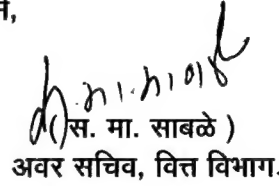 न,
(स. मा. साबळे )
अवर सचिव, वित्त विभाग.